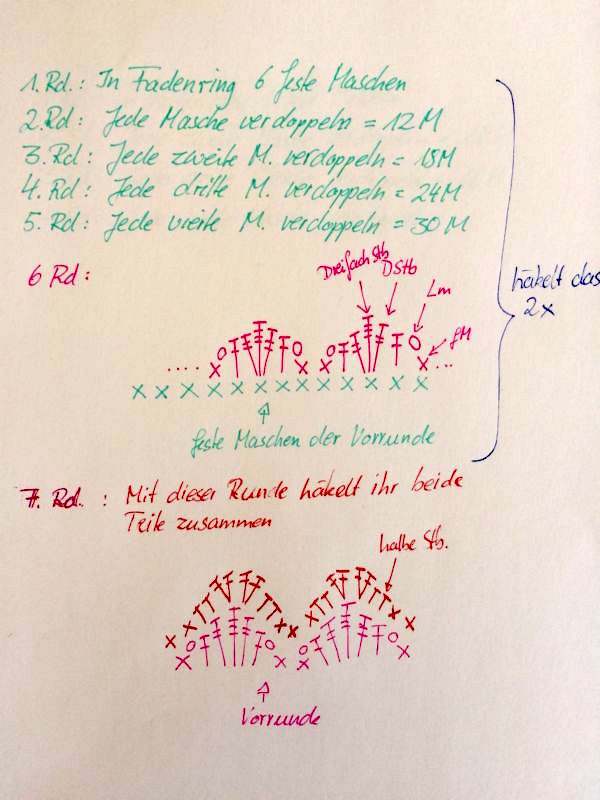 1. Rd.: In Fadenring 6 feste Maschen
2. Rd: Jede Masche verdoppeln = 12 M
3. Rd: Jede zweite M. verdoppeln = 18 M
4. Rd: Jede dritte M. verdoppeln = 24 M
5. Rd: Jede vierte M. verdoppeln = 30 M
häkelt das
2x
6 Rd:
Dreifach Stb
DStb
Lm
fM
feste Maschen der Vorrunde
7. Rd. : Mit dieser Runde häkelt ihr beide
Teile zusammen
halbe Stb.
Vorrunde